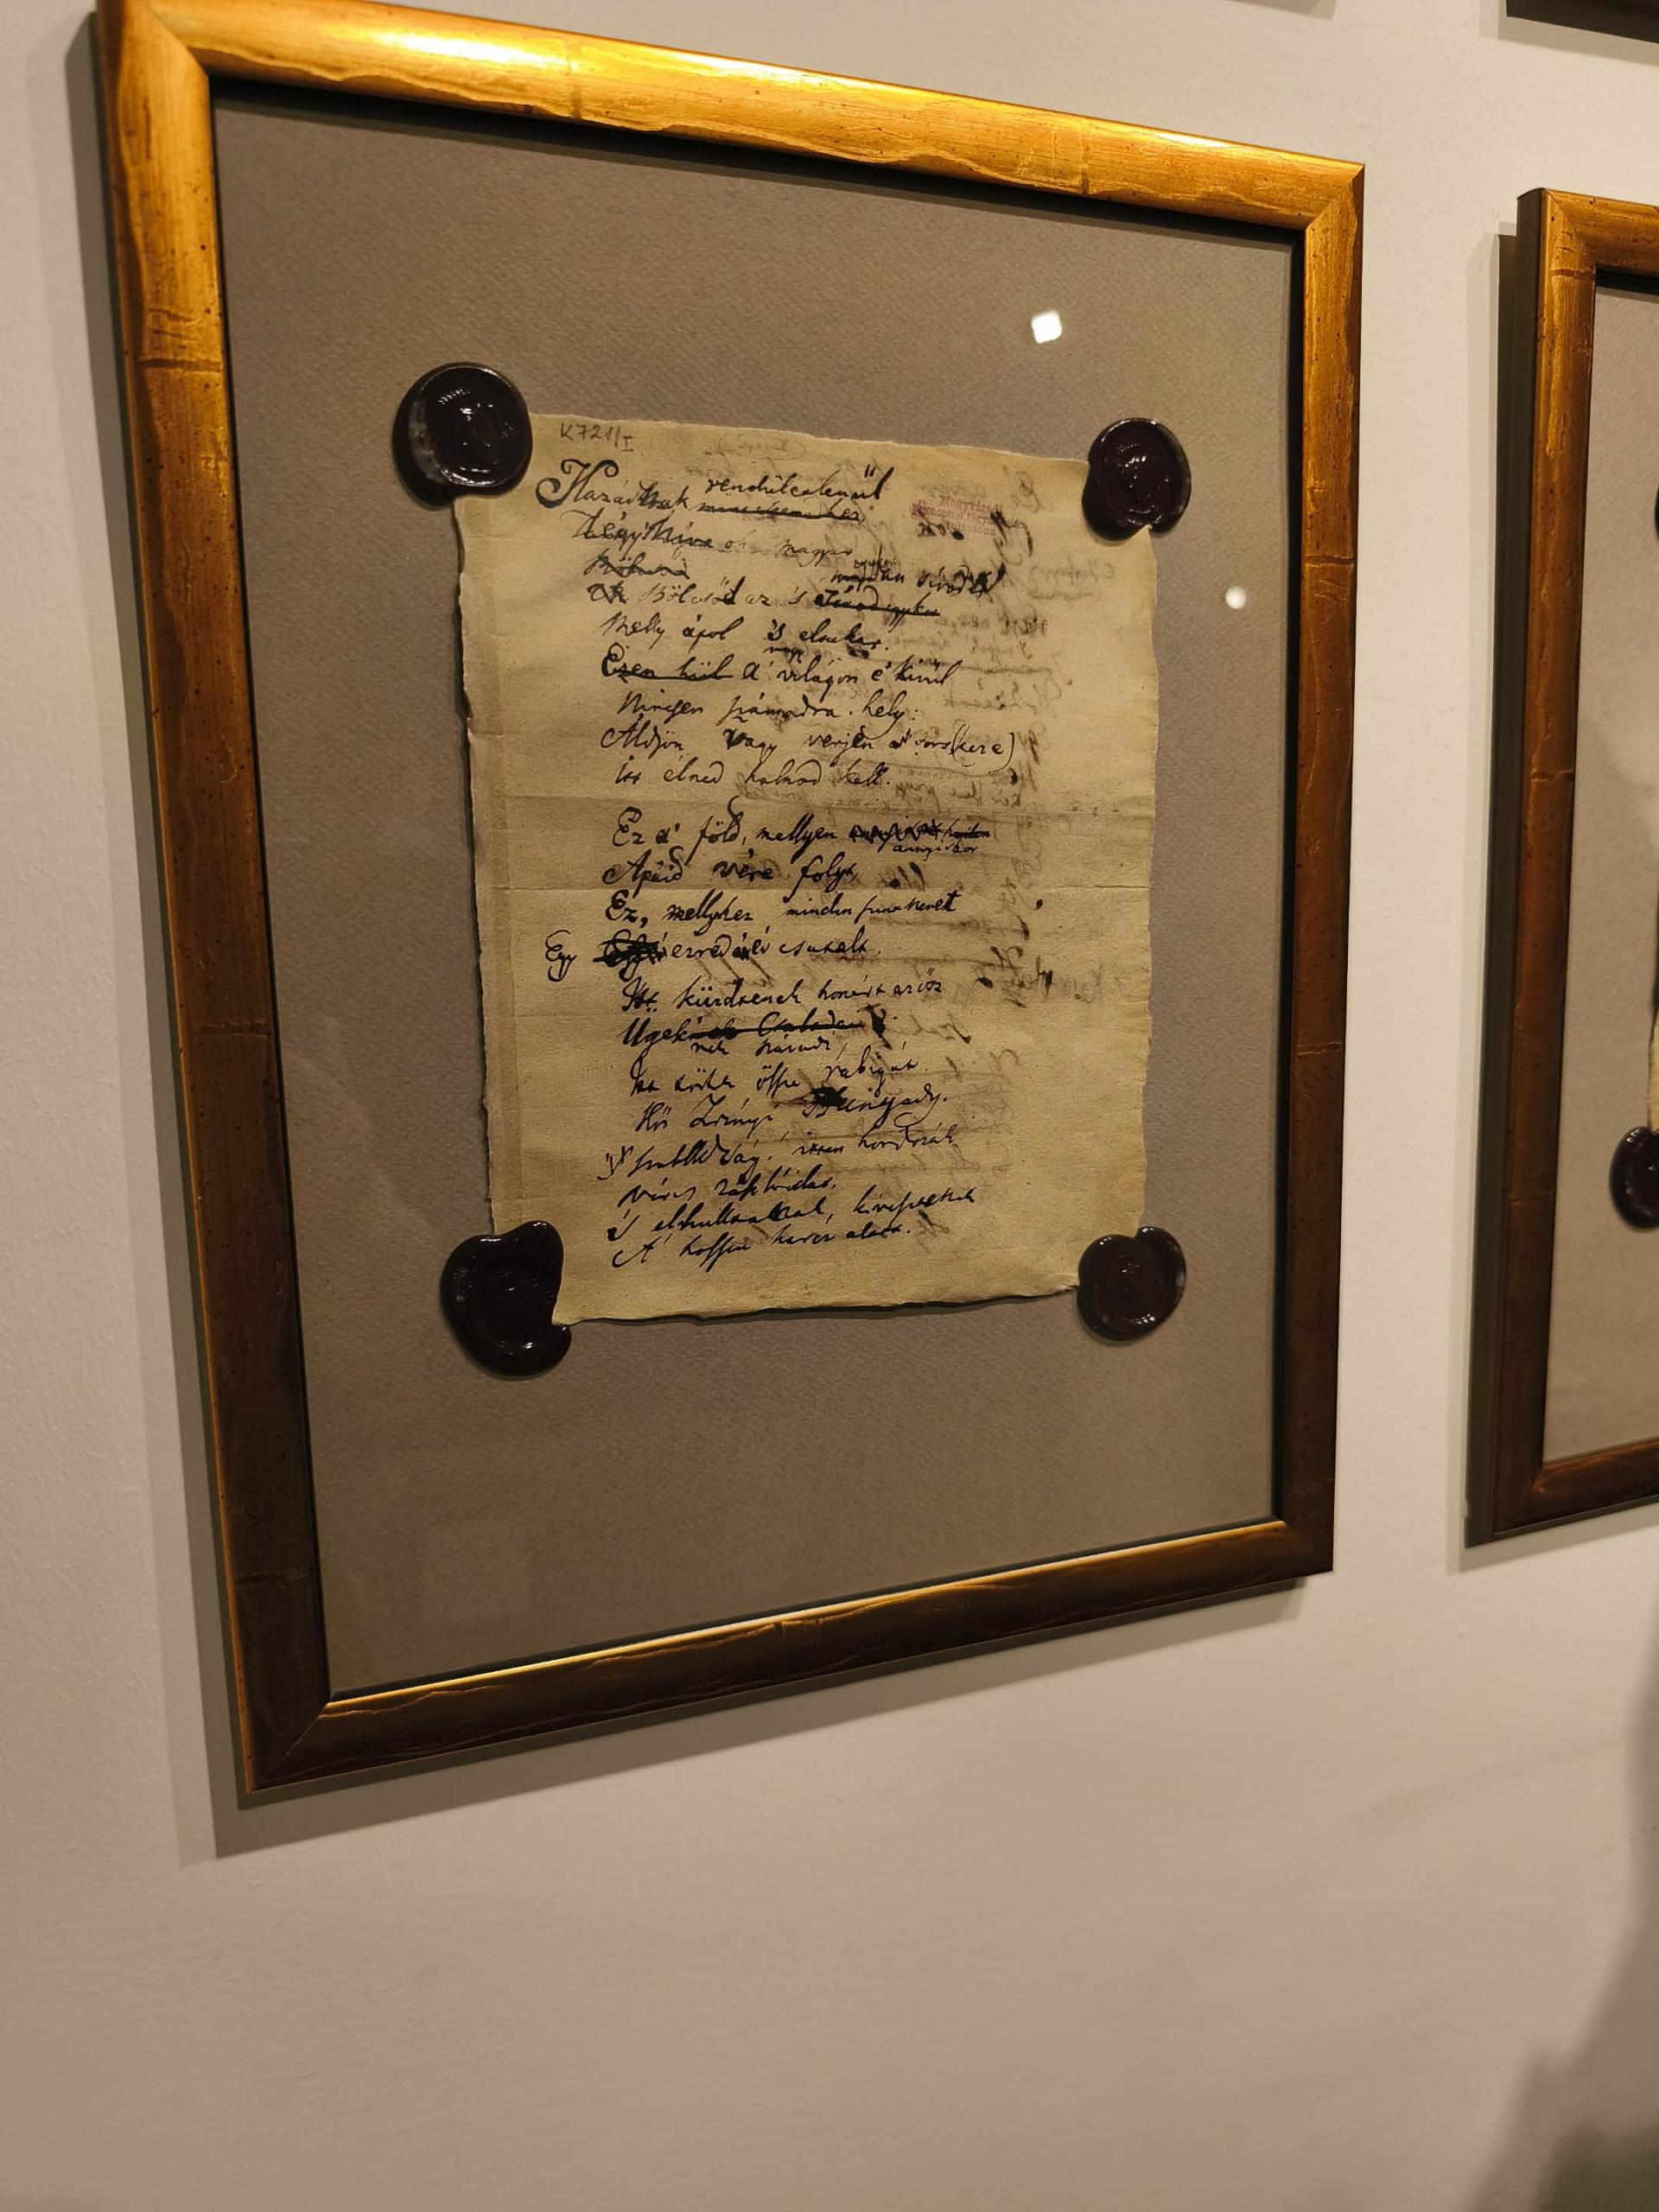 K721/I
Hazádnak rendületlenűl
Légy híve oh magyar
Bölcsőd az 's sírod
Melly ápol 's eltakar.
Ezen kül A' nagy világon e' kivül
Nincsen számodra hely:
Áldjon vagy verjen a' sors(keze)
itt élned halnod kell.
Ez a' föld, mellyen annyiszor
Apáid vére folyt,
Ez, mellyhez minden szent nevet
Egy ezredév csatolt.
Itt küzdtenek honért a' hős
nek hadai,
Itt törtek össze rabigát
Hős Zrínyi Hunyady.
Szabadság! itten hordozák
véres zászlóidat,
's elhulltanak, kivesztenek
A' hosszu harcz alatt.